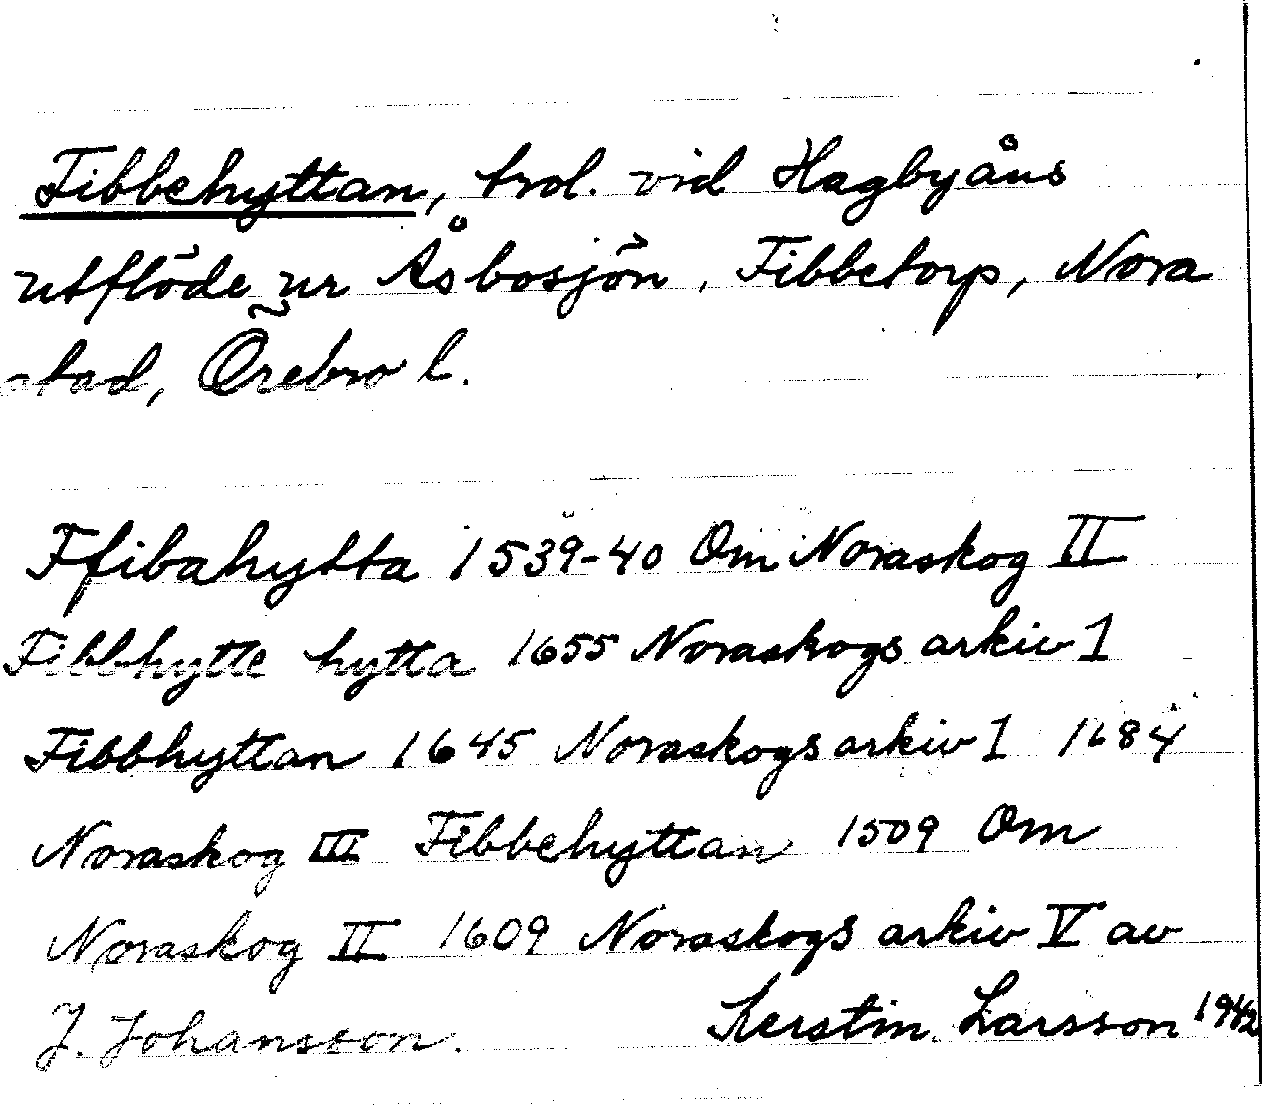 Fibbehyttan, trol. vid Hagbyåns
utflöde ur Åsbosjön, Fibbetorp, Nora
stad, Örebro l.
Ffibahytta 1539-40 Om Noraskog II
Fibbhytte hytta 1655 Noraskogs arkiv I
Fibbhyttan 1645 Noraskogs arkiv I 1684
Noraskog III Fibbehyttan 1509 Om
Noraskog II 1609 Noraskogs arkiv V av
J. Johansson. Kerstin Larsson 1942